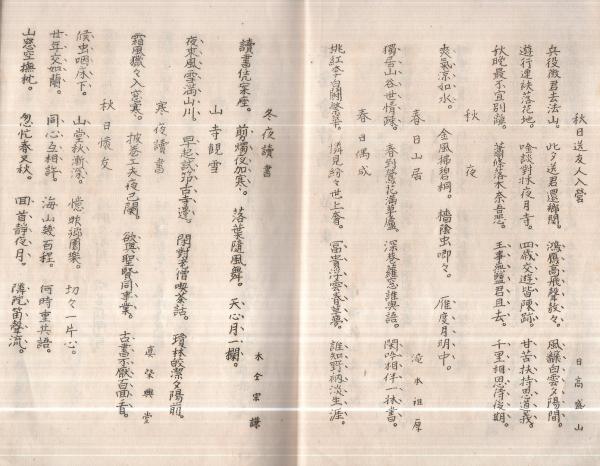 秋日送友人入營
日高盛山
兵役徴君去法山。此夕送君還鄉關。鴻鴈高飛聲敎々。風飜白雲夕陽間。
遊行連袂落花地。唫談對牀夜月寺。四歳交遊皆陳跡。甘苦扶持思道義。
秋晚最不宜別離。蕭條落木奈吾悲。王事無盬君且去。千里相思待後期。
秋夜
爽氣涼如水。金風掃碧桐。牆陰虫喞々。雁度月明中。
春日山居
滝本祖厚
獨居山谷世情疎。春到鶯花滿草廬。深巷誰與語。閑吟相伴一牀書。
春日偶成
桃紅李白鬪繁華。憐見紛々世上奢。冨貴浮雲春草夢。誰知野衲淡生涯。
冬夜讀書
木全宗謙
讀書凭案座。剪燭夜加寒。落葉隨風舞。天心月一欄。
山寺觀雪
夜來風雪滿山川。早起試筇古寺邊。閑對老僧喫茶話。瓊林皎潔夕陽前。
寒夜讀書
真榮興堂
霜風獵々入窓寒。披卷工夫夜已闌。欲與聖賢同事業。古書不厭百回看。
秋日懷友
候虫咽床下。山堂秋漸深。憶映鄉園樂。切々一片心。
廿年交如蘭。同心互相許。海山幾百程。何時重共語。
山窓空撫枕。忽忙春又秋。回首靜夜月。隣院笛聲流。